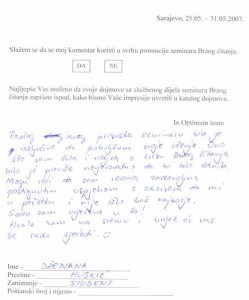 Sarajevo, 25.05. – 31.05.2007.
Slažem se da se moj komentar koristi u svrhu promocije seminara Brzog čitanja.
DA NE
Najljepše Vas molimo da svoje dojmove sa službenog dijela seminara Brzog
čitanja zapišete ispod, kako bismo Vaše impresije uvrstili u katalog dojmova.
In Optimum team
Razlog mog pristupa seminaru bio je
isključivo da poboljšam svoje učenje
što sam čula i vidjela s kursa Brzog čitanja
bilo je previše nevjerovatno da bi bilo istinito
Mogu reći da sam veoma zadovoljna
postignutim uspjehom s obzirom da mi
u početku i nije išlo baš najbolje.
Sada sam uvjerena u to!
Hvala vam na svemu i uvijek ću vas
se rado sjećati!
Ime - DŽENANA
Prezime - HUSKIĆ
Zanimanje - STUDENT
Poštanski broj i mjesto -